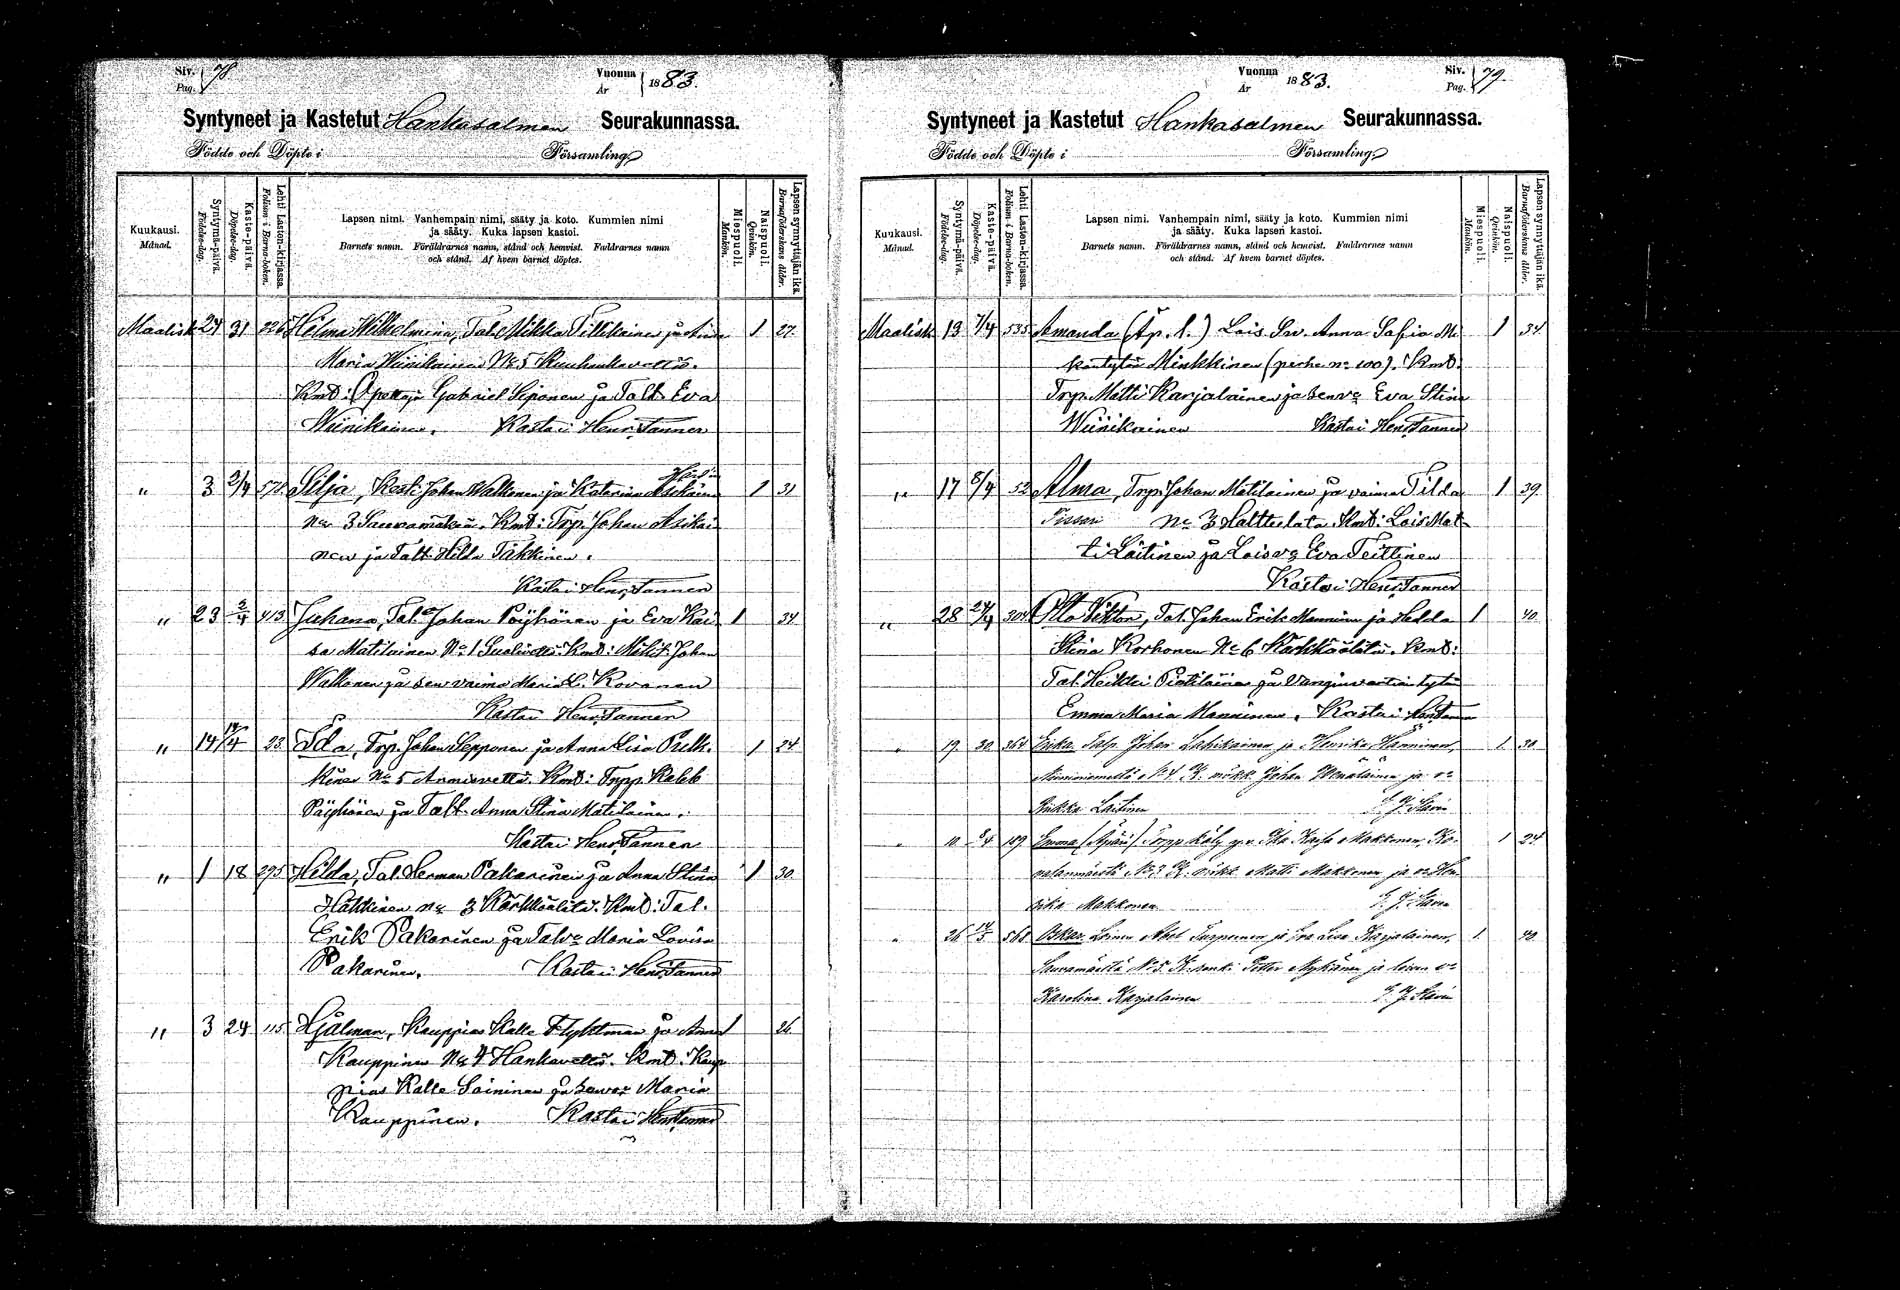 Siv. Pag. 78
Vuonna År 1883.
Syntyneet ja Kastetut Hankasalmen Seurakunnassa.
Födde och Döpte i Församling
Kuukausi. Månad.
Syntymä-päivä. Födelse-dag.
Kaste-päivä. Döpelse-dag.
Lehti Lasten-kirjassa. Folium i Barna-boken.
Lapsen nimi. Vanhempain nimi, sääty ja koto. Kummien nimi
ja sääty. Kuka lapsen kastoi.
Barnets namn. Föräldrarnes namn, stånd och hemvist. Faddrarnes namn
och stånd. Af hvem barnet döptes.
Miespuoli. Mankön.
Naispuoli. Qvinkön.
Lapsen synnyttäjän ikä. Barnaföderskans ålder.
Maalisk 24 31 226 Helma Wilhelmina, Tal. Mikko Tillikainen ja Anna 1 27.
Maria Wiinikainen No 5
Kmt: Opettaja Gabriel Siponen ja Talt. Eva
Wiinikainen. Kastoi Henr. Tanner
" 3 2/4 578. Silja, Kesti Johan Walkonen ja Katarina Asikainen 1 31
No 3 Sauvamäkeä. Kmt: Trp. Johan Asikai-
nen ja Talt. Hilda Takkinen.
Kastoi Henr. Tanner
" 23 2/4 413 Juhana, Tal. Johan Pöyhönen ja Eva Kai 1 34
sa Matilainen No 1 Kmt: Johan
Walkonen ja sen vaimo Maria L. Kovanen
Kastoi Henr. Tanner
" 14 14/4 23. Ida, Trp. Johan Sepponen ja Anna Lisa Pulk- 1 24
kinen No 5 Kmt: Trpp.
Pöyhönen ja Talt. Anna Stina Matilainen.
Kastoi Henr. Tanner
" 1 18 295 Hilda, Tal. Herman Pakarinen ja Anna Stina 1 30
Häkkinen No 3 Kärkkäälitä. Kmt: Tal.
Erik Pakarinen ja Tal. vo Maria Lovisa
Pakarinen. Kastoi Henr. Tanner
" 3 24 115. Hjalmar, Kauppias Kalle Flyktman ja Anna 1 26
Kauppinen No 4 Hankavettä. Kmt: Kaup-
pias Kalle Saininen ja sen vo Maria
Kauppinen. Kastoi Henr. Tanner
Vuonna År 1883.
Siv. Pag. 79.
Syntyneet ja Kastetut Hankasalmen Seurakunnassa.
Födde och Döpte i Församling
Kuukausi. Månad.
Syntymä-päivä. Födelse-dag.
Kaste-päivä. Döpelse-dag.
Lehti Lasten-kirjassa. Folium i Barna-boken.
Lapsen nimi. Vanhempain nimi, sääty ja koto. Kummien nimi
ja sääty. Kuka lapsen kastoi.
Barnets namn. Föräldrarnes namn, stånd och hemvist. Faddrarnes namn
och stånd. Af hvem barnet döptes.
Miespuoli. Mankön.
Naispuoli. Qvinkön.
Lapsen synnyttäjän ikä. Barnaföderskans ålder.
Maalisk 13 7/4 535 Amanda (Äp. l.) Lois. Anna Sofia Mi 1 34
kontytär Minkkinen (perhe no 100). Kmt.
Trp. Matti Karjalainen ja sen vo Eva Stina
Wiinikainen Kastoi Henr. Tanner
" 17 8/4 52 Alma, Trp. Johan Matilainen ja vaimo Tilda 1 39.
Tissari No 3 Kmt: Lois Mat-
ti Laitinen ja Lois vo Eva Teittinen
Kastoi Henr. Tanner
" 28 24/4 304 Otto Viktor, Tal. Johan Erik Manninen ja Hedda 1 40
Stina Korhonen No 6 Kärkkäälitä. Kmt:
Tal. Heikki Pietiläinen ja Vanginvartian tytär
Emma Maria Manninen. Kastoi Henr. Tanner
" 19 30 364 Erika, Johan Lahikainen ja Henrika Hänninen, 1. 30.
Niiminiemestä No 4. K. mökk. Johan Wenäläinen ja vo
Riikka Laitinen
" 10 189 Emma (Äpärä) Kaisa Makkonen, Ko- 1 24
valanmäestä No 3 K. mökk. Matti Makkonen ja vo Hen-
rika Makkonen
" 26 568 Oskar, Loinen Abel Turpeinen ja Eva Lisa Karjalainen, 1. 40.
Sauvamäestä No 5. K. renki Petter Nykänen ja loisen vo
Karolina Karjalainen